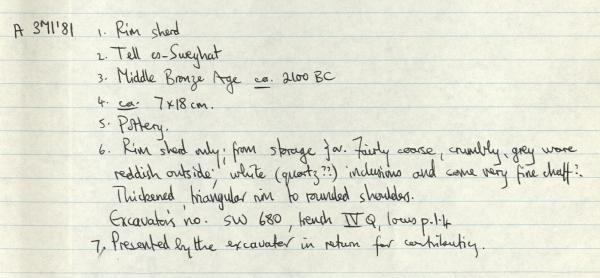 A 371'81 1. Rim sherd
2. Tell es-Sweyhat
3. Middle Bronze Age ca. 2100 BC
4. ca. 7x18 cm.
5. Pottery.
6. Rim sherd only; from storage jar. Fairly coarse, crumbly, grey ware
reddish outside; white (quartz??) inclusions and some very fine chaff?.
Thickened, triangular rim to rounded shoulders.
Excavator's no. SW 680, trench IV Q, locus p.1:4
7. Presented by the excavater in return for contributing.